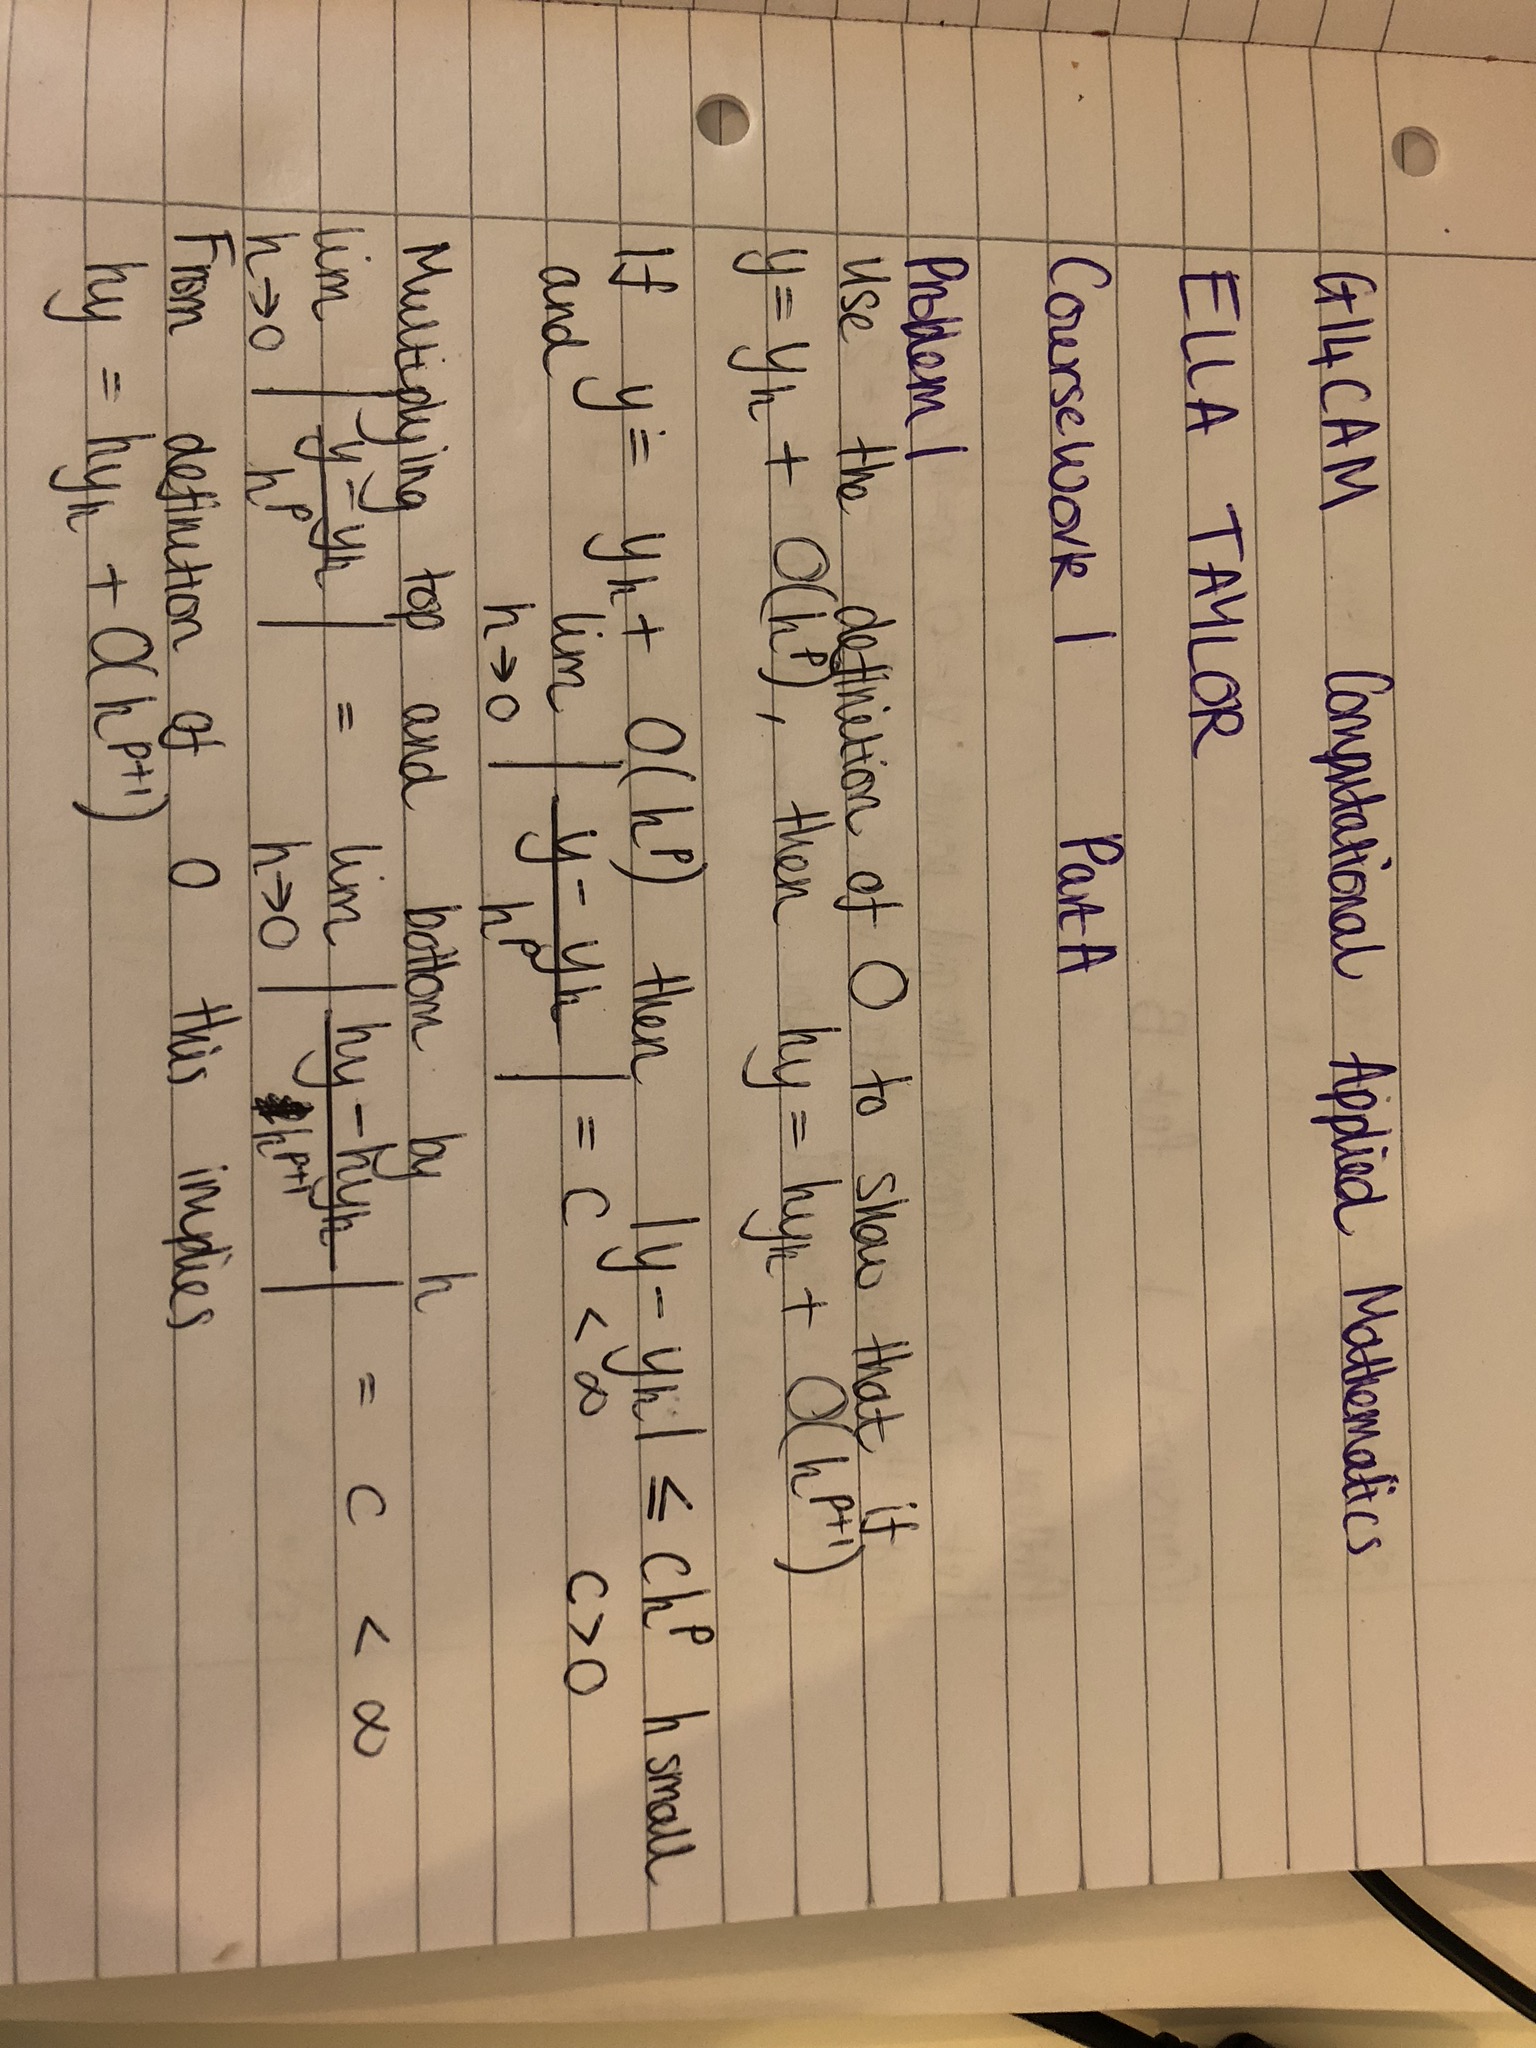 G14CAM Computational Applied Mathematics
ELLA TAYLOR
Coursework 1 Part A
Problem 1
Use the definition of O to show that if
y = y_h + O(h^p), then hy = hy_h + O(h^{p+1})
If y = y_h + O(h^p) then |y - y_h| ≤ ch^p h small
and lim_{h→0} |(y - y_h)/h^p| = c < ∞ c > 0
Multiplying top and bottom by h
lim_{h→0} |(y - y_h)/h^p| = lim_{h→0} |(hy - hy_h)/h^{p+1}| = c < ∞
From definition of O this implies
hy = hy_h + O(h^{p+1})